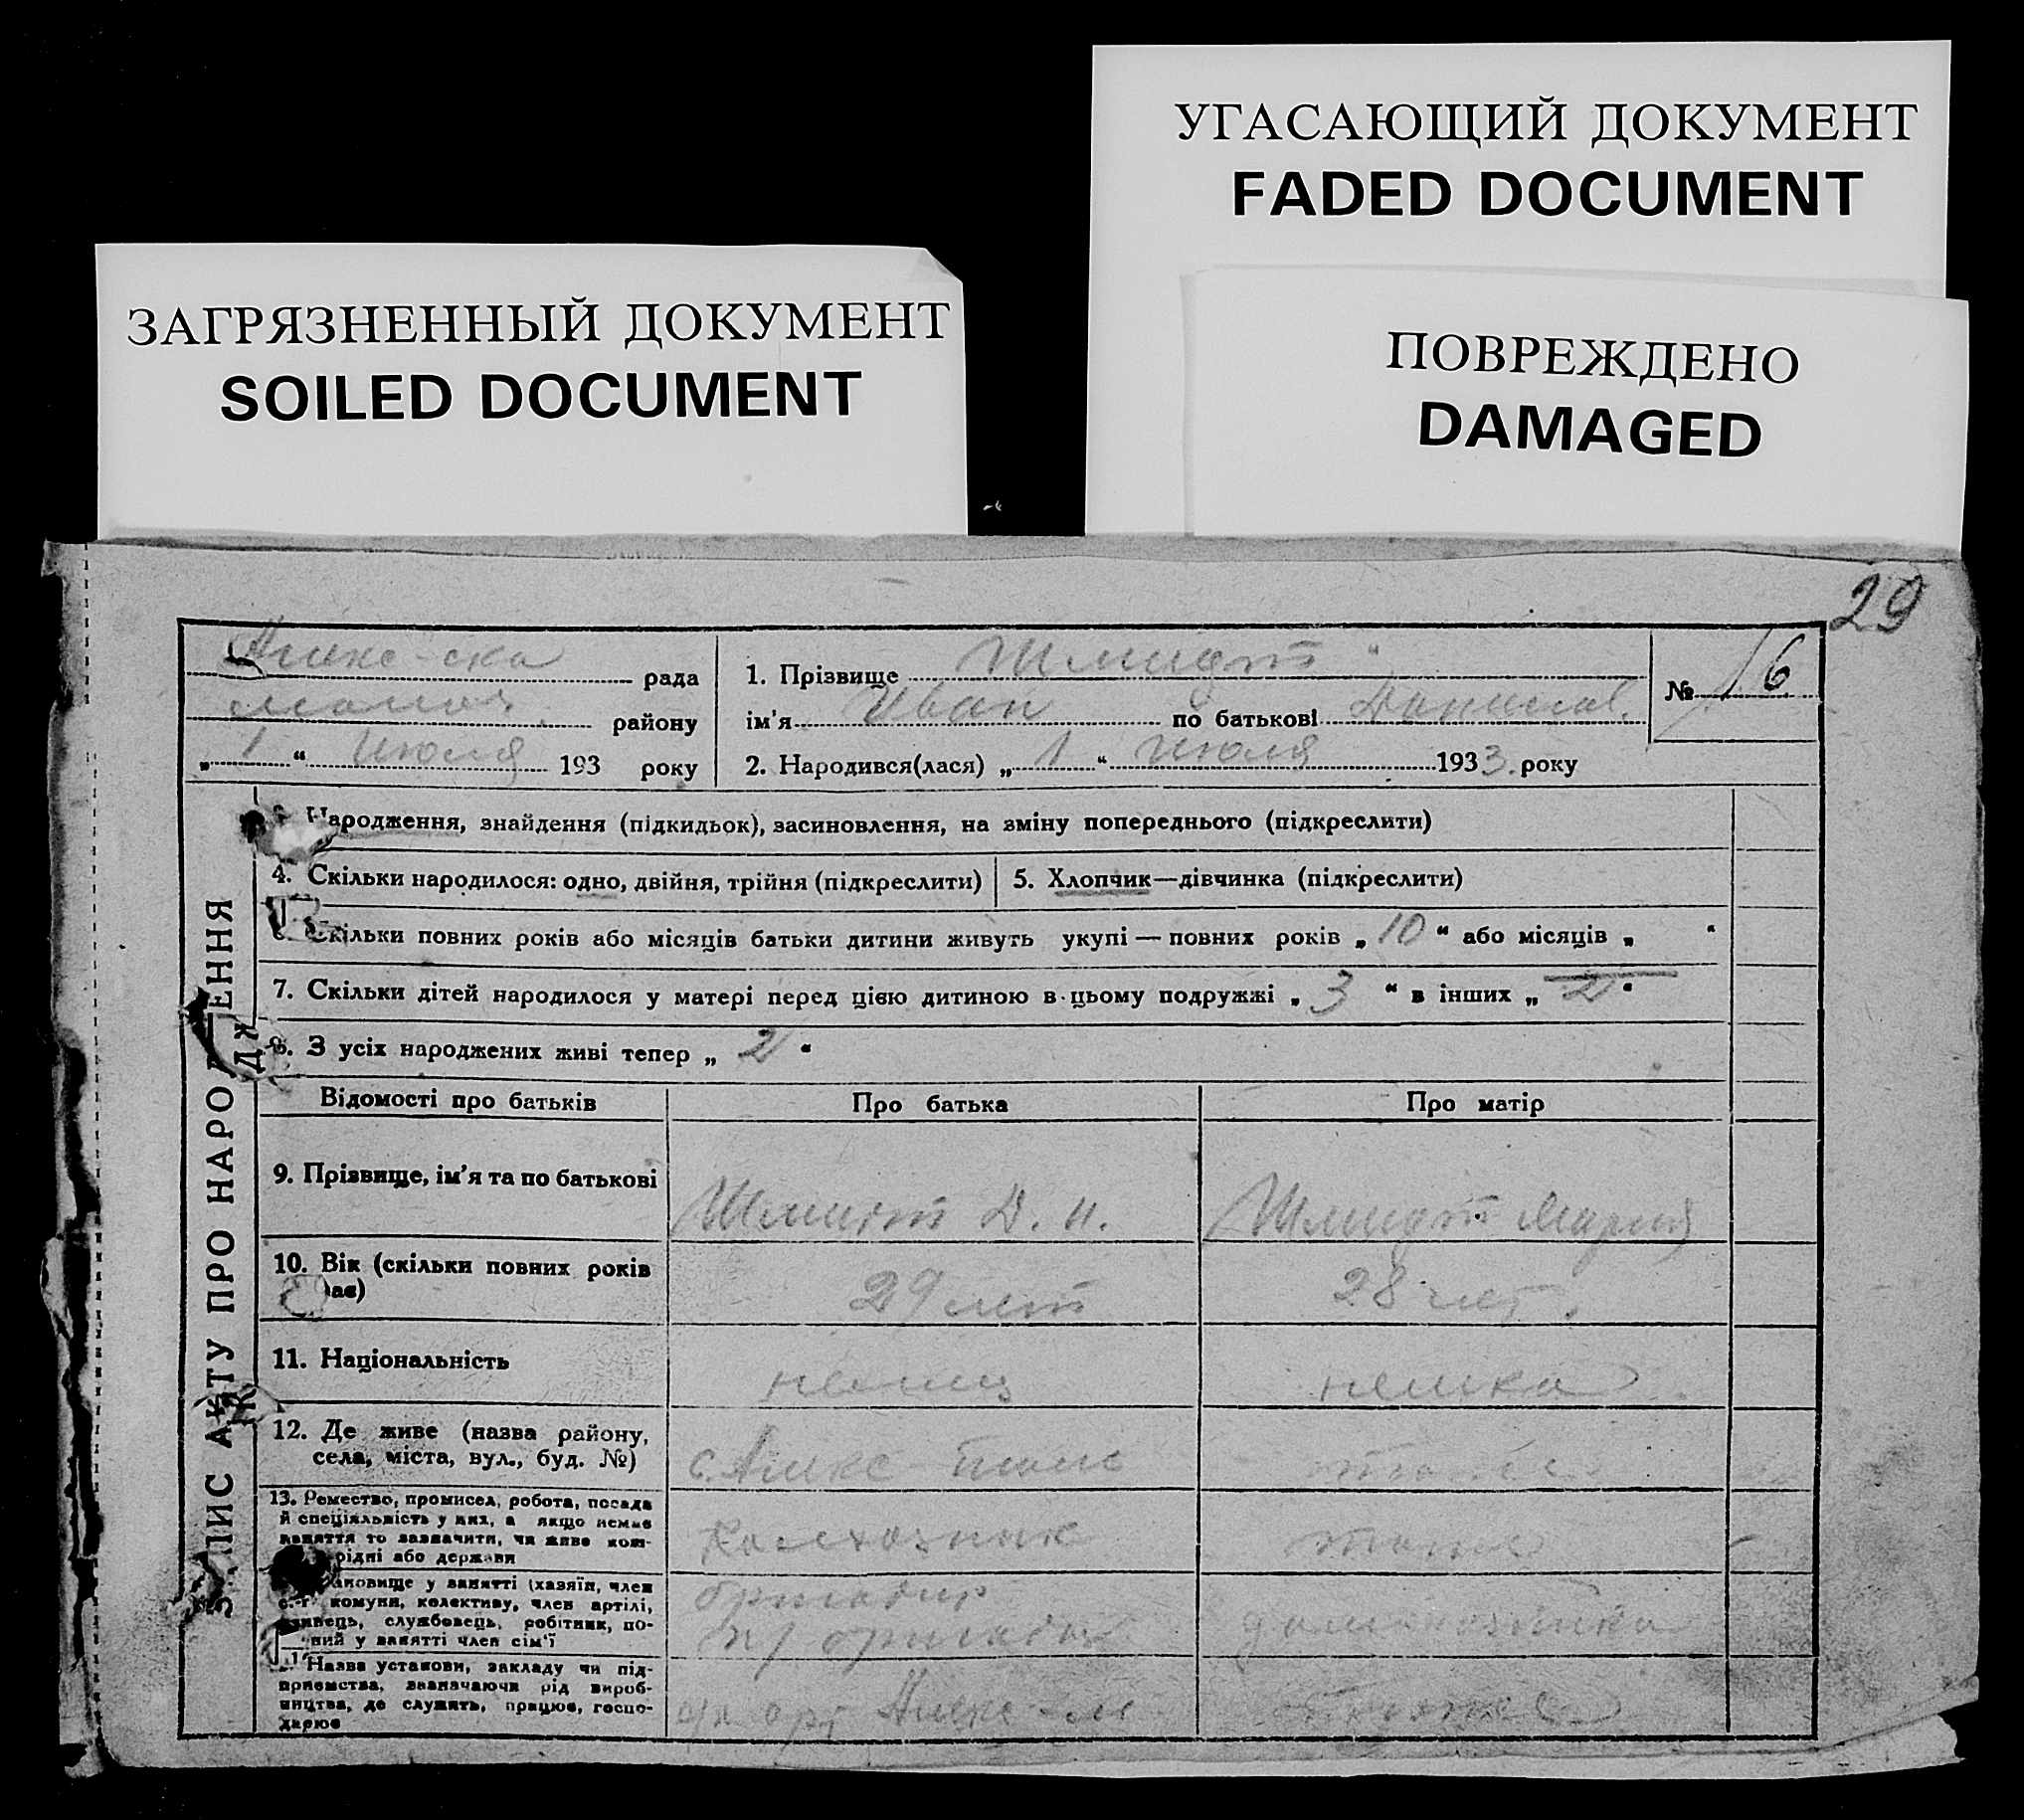 УГАСАЮЩИЙ ДОКУМЕНТ
FADED DOCUMENT
ЗАГРЯЗНЕННЫЙ ДОКУМЕНТ
SOILED DOCUMENT
ПОВРЕЖДЕНО
DAMAGED
29
Алекс-ска рада
району
„ 1 “ июля 193 року
1. Прізвище Шмидт
ім'я Иван по батькові
2. Народився(лася) „ 1 “ июля 1933. року
№ 16
ЗАПИС АКТУ ПРО НАРОДЖЕННЯ
Народження, знайдення (підкидьок), засиновлення, на зміну попереднього (підкреслити)
4. Скільки народилося: одно, двійня, трійня (підкреслити)
5. Хлопчик—дівчинка (підкреслити)
Скільки повних років або місяців батьки дитини живуть укупі — повних років „ 10 “ або місяців „ “
7. Скільки дітей народилося у матері перед цією дитиною в цьому подружжі „ 3 “ в інших „ “
8. З усіх народжених живі тепер „ 2 “
Відомості про батьків
Про батька
Про матір
9. Прізвище, ім'я та по батькові
Шмидт Д. И.
Шмидт Мария
10. Вік (скільки повних років
має)
29 лет
28 лет.
11. Національність
немец
немка
12. Де живе (назва району,
села, міста, вул., буд. №)
с. Алекс поле
тоже
13. Ремество, промисел, робота, посада
й спеціяльність у них, а якщо немає
заняття то зазначити, чи живе ком-
рідні або держави
Колхозник
тоже
ановище у занятті (хазяїн, член
с.-г. комуни, колективу, член артілі,
службовець, робітник, по-
ний у занятті член сім'ї
бригадир
домохозяйка
Назва установи, закладу чи під-
приємства, зазначаючи рід вироб-
ництва, де служить, працює, госпо-
дарює
тоже